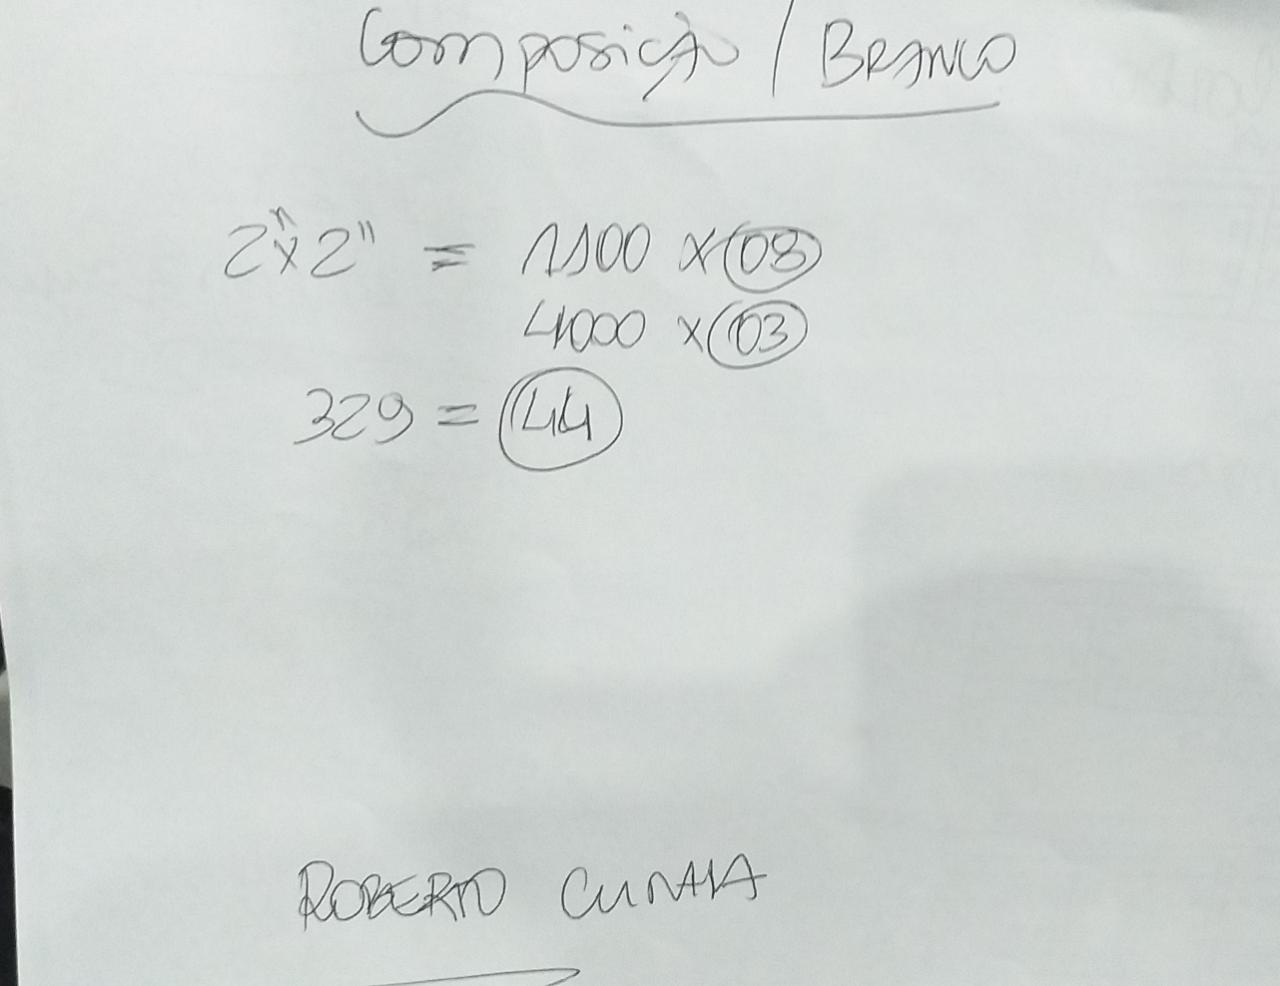 Composição / BRANCO
2"x2" = 1100 x 08
4000 x 03
329 = 44
ROBERTO CUNHA